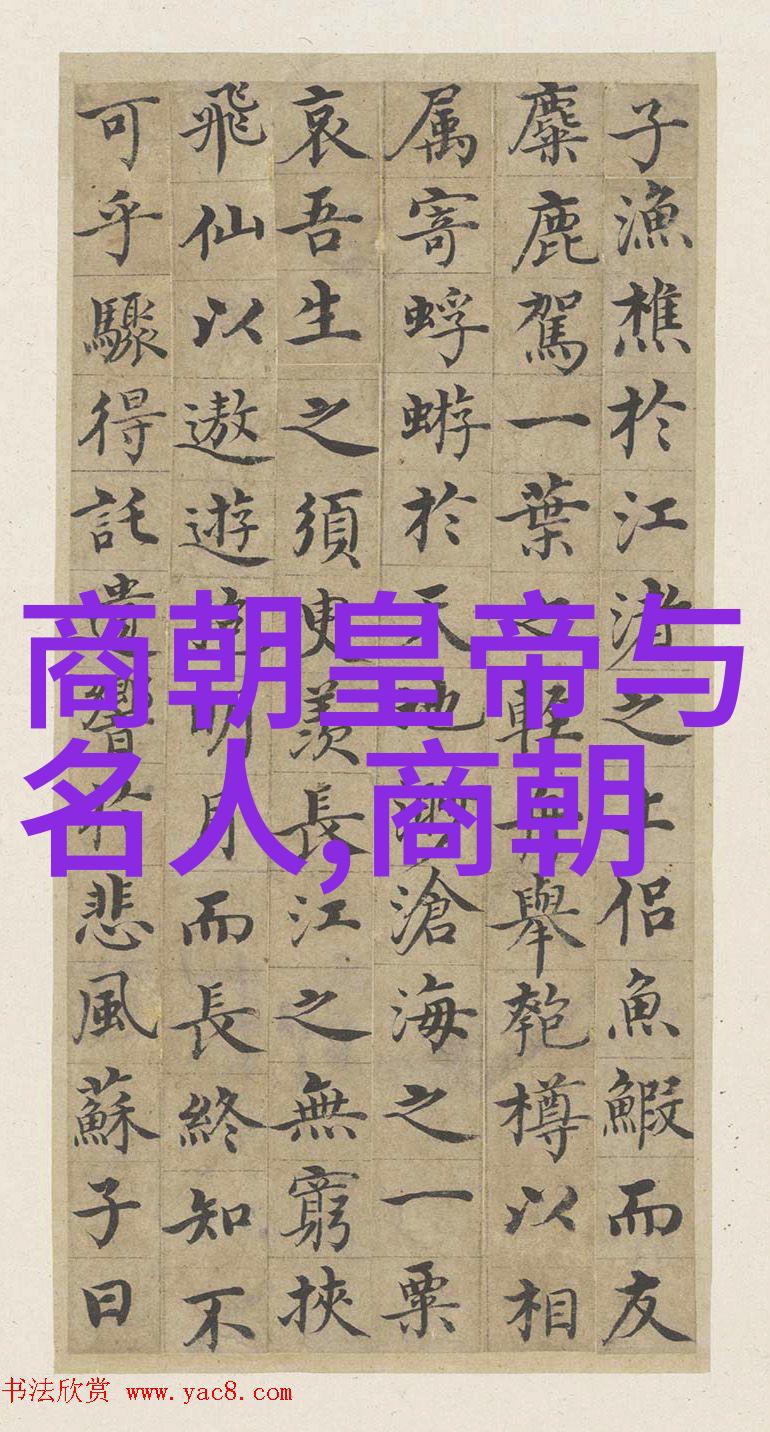 子漁樵於江渚之上侶魚鰕而友
麋鹿駕一葉之輕舟舉匏樽以相
属寄蜉蝣於天地渺滄海之一粟
哀吾生之須臾羨長江之無窮挾
飛仙以遨遊抱明月而長終知不
可乎驟得託遺響於悲風蘇子曰
商朝皇帝与
名人,商朝
书法欣赏 www.yac8.com